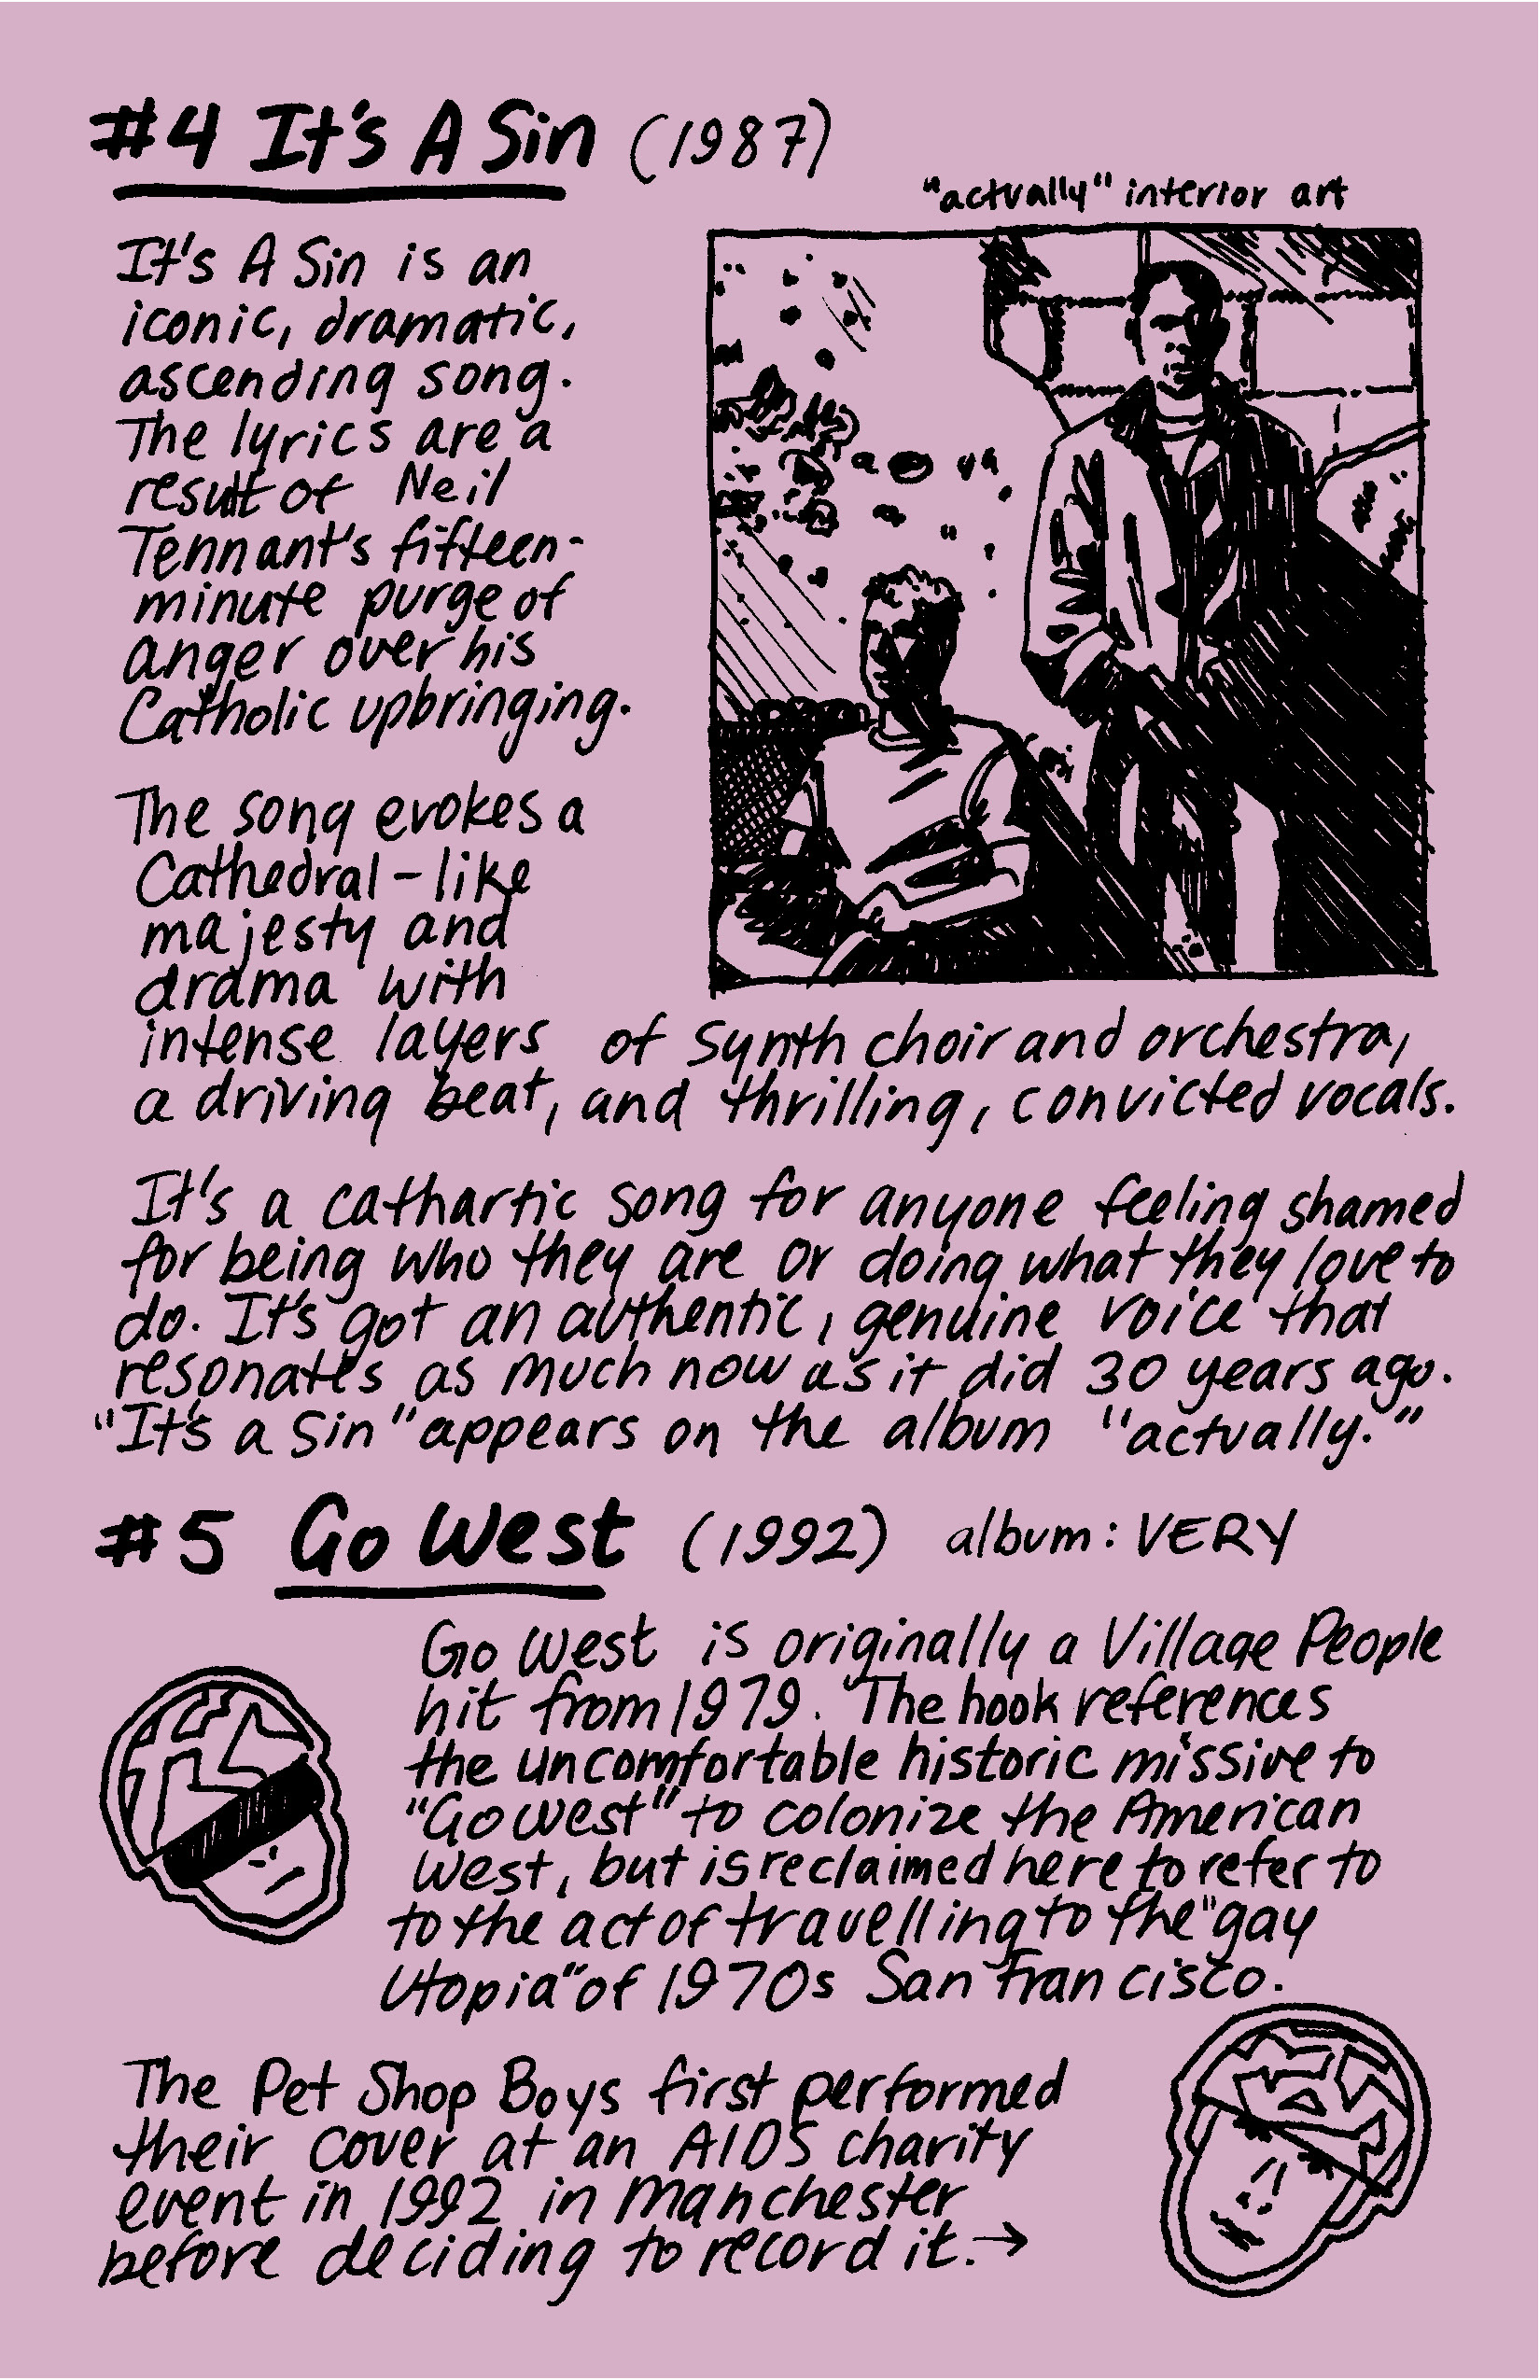 #4 It's A Sin (1987)
"actually" interior art
It's A Sin is an
iconic, dramatic,
ascending song.
The lyrics are a
result of Neil
Tennant's fifteen-
minute purge of
anger over his
Catholic upbringing.
The song evokes a
Cathedral-like
majesty and
drama with
intense layers of synth choir and orchestra,
a driving beat, and thrilling, convicted vocals.
It's a cathartic song for anyone feeling shamed
for being who they are or doing what they love to
do. It's got an authentic, genuine voice that
resonates as much now as it did 30 years ago.
"It's a Sin" appears on the album "actually."
#5 Go West (1992) album: VERY
Go West is originally a Village People
hit from 1979. The hook references
the uncomfortable historic missive to
"Go West" to colonize the American
West, but is reclaimed here to refer to
to the act of travelling to the "gay
Utopia" of 1970s San Francisco.
The Pet Shop Boys first performed
their cover at an AIDS charity
event in 1992 in Manchester
before deciding to record it. →